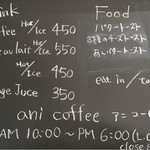 ink
Food
ffee Hot/Ice 450
バタートースト
au lait Hot/Ice 550
チーズトースト
あんバタートースト
/Ice 450
eat in / ta
nge Juce 350
ani coffee
アニコーヒ
AM 10:00 ~ PM 6:00 (L.
close